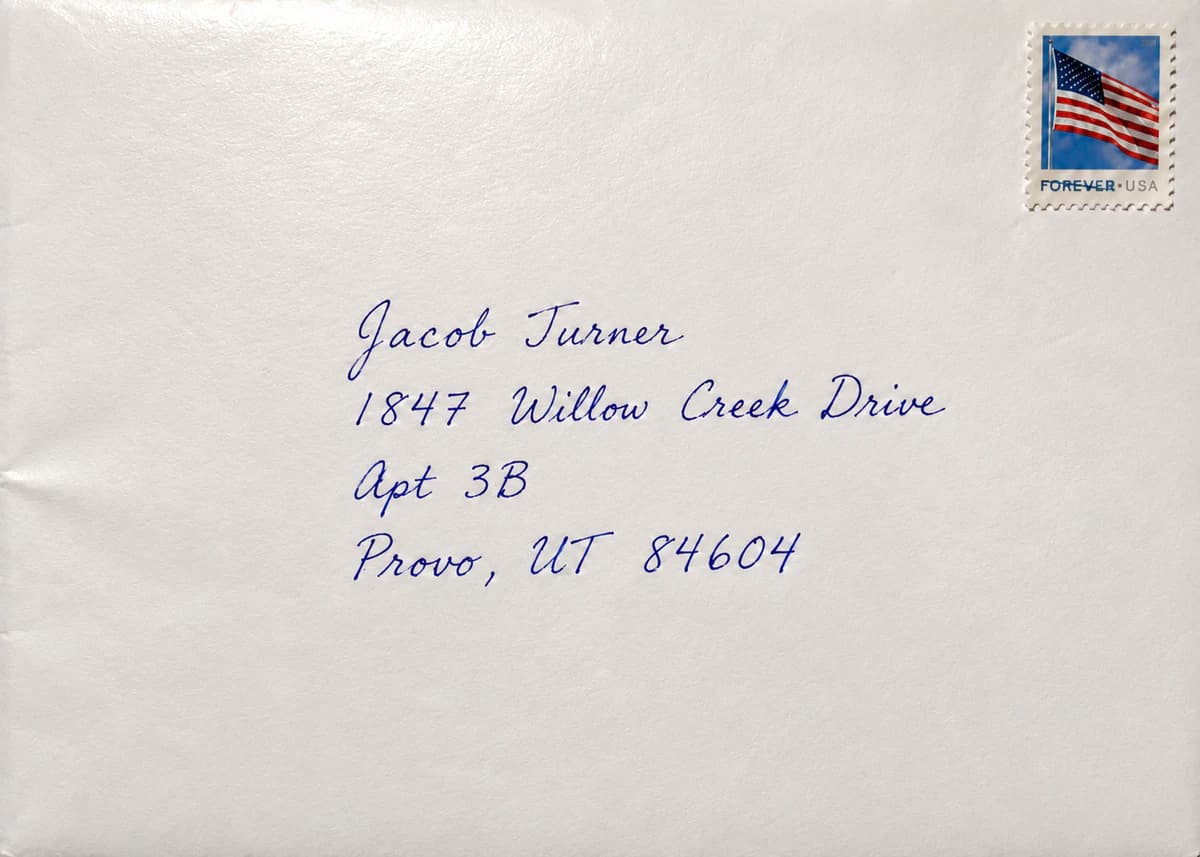 FOREVER·USA
Jacob Turner
1847 Willow Creek Drive
Apt 3B
Provo, UT 84604